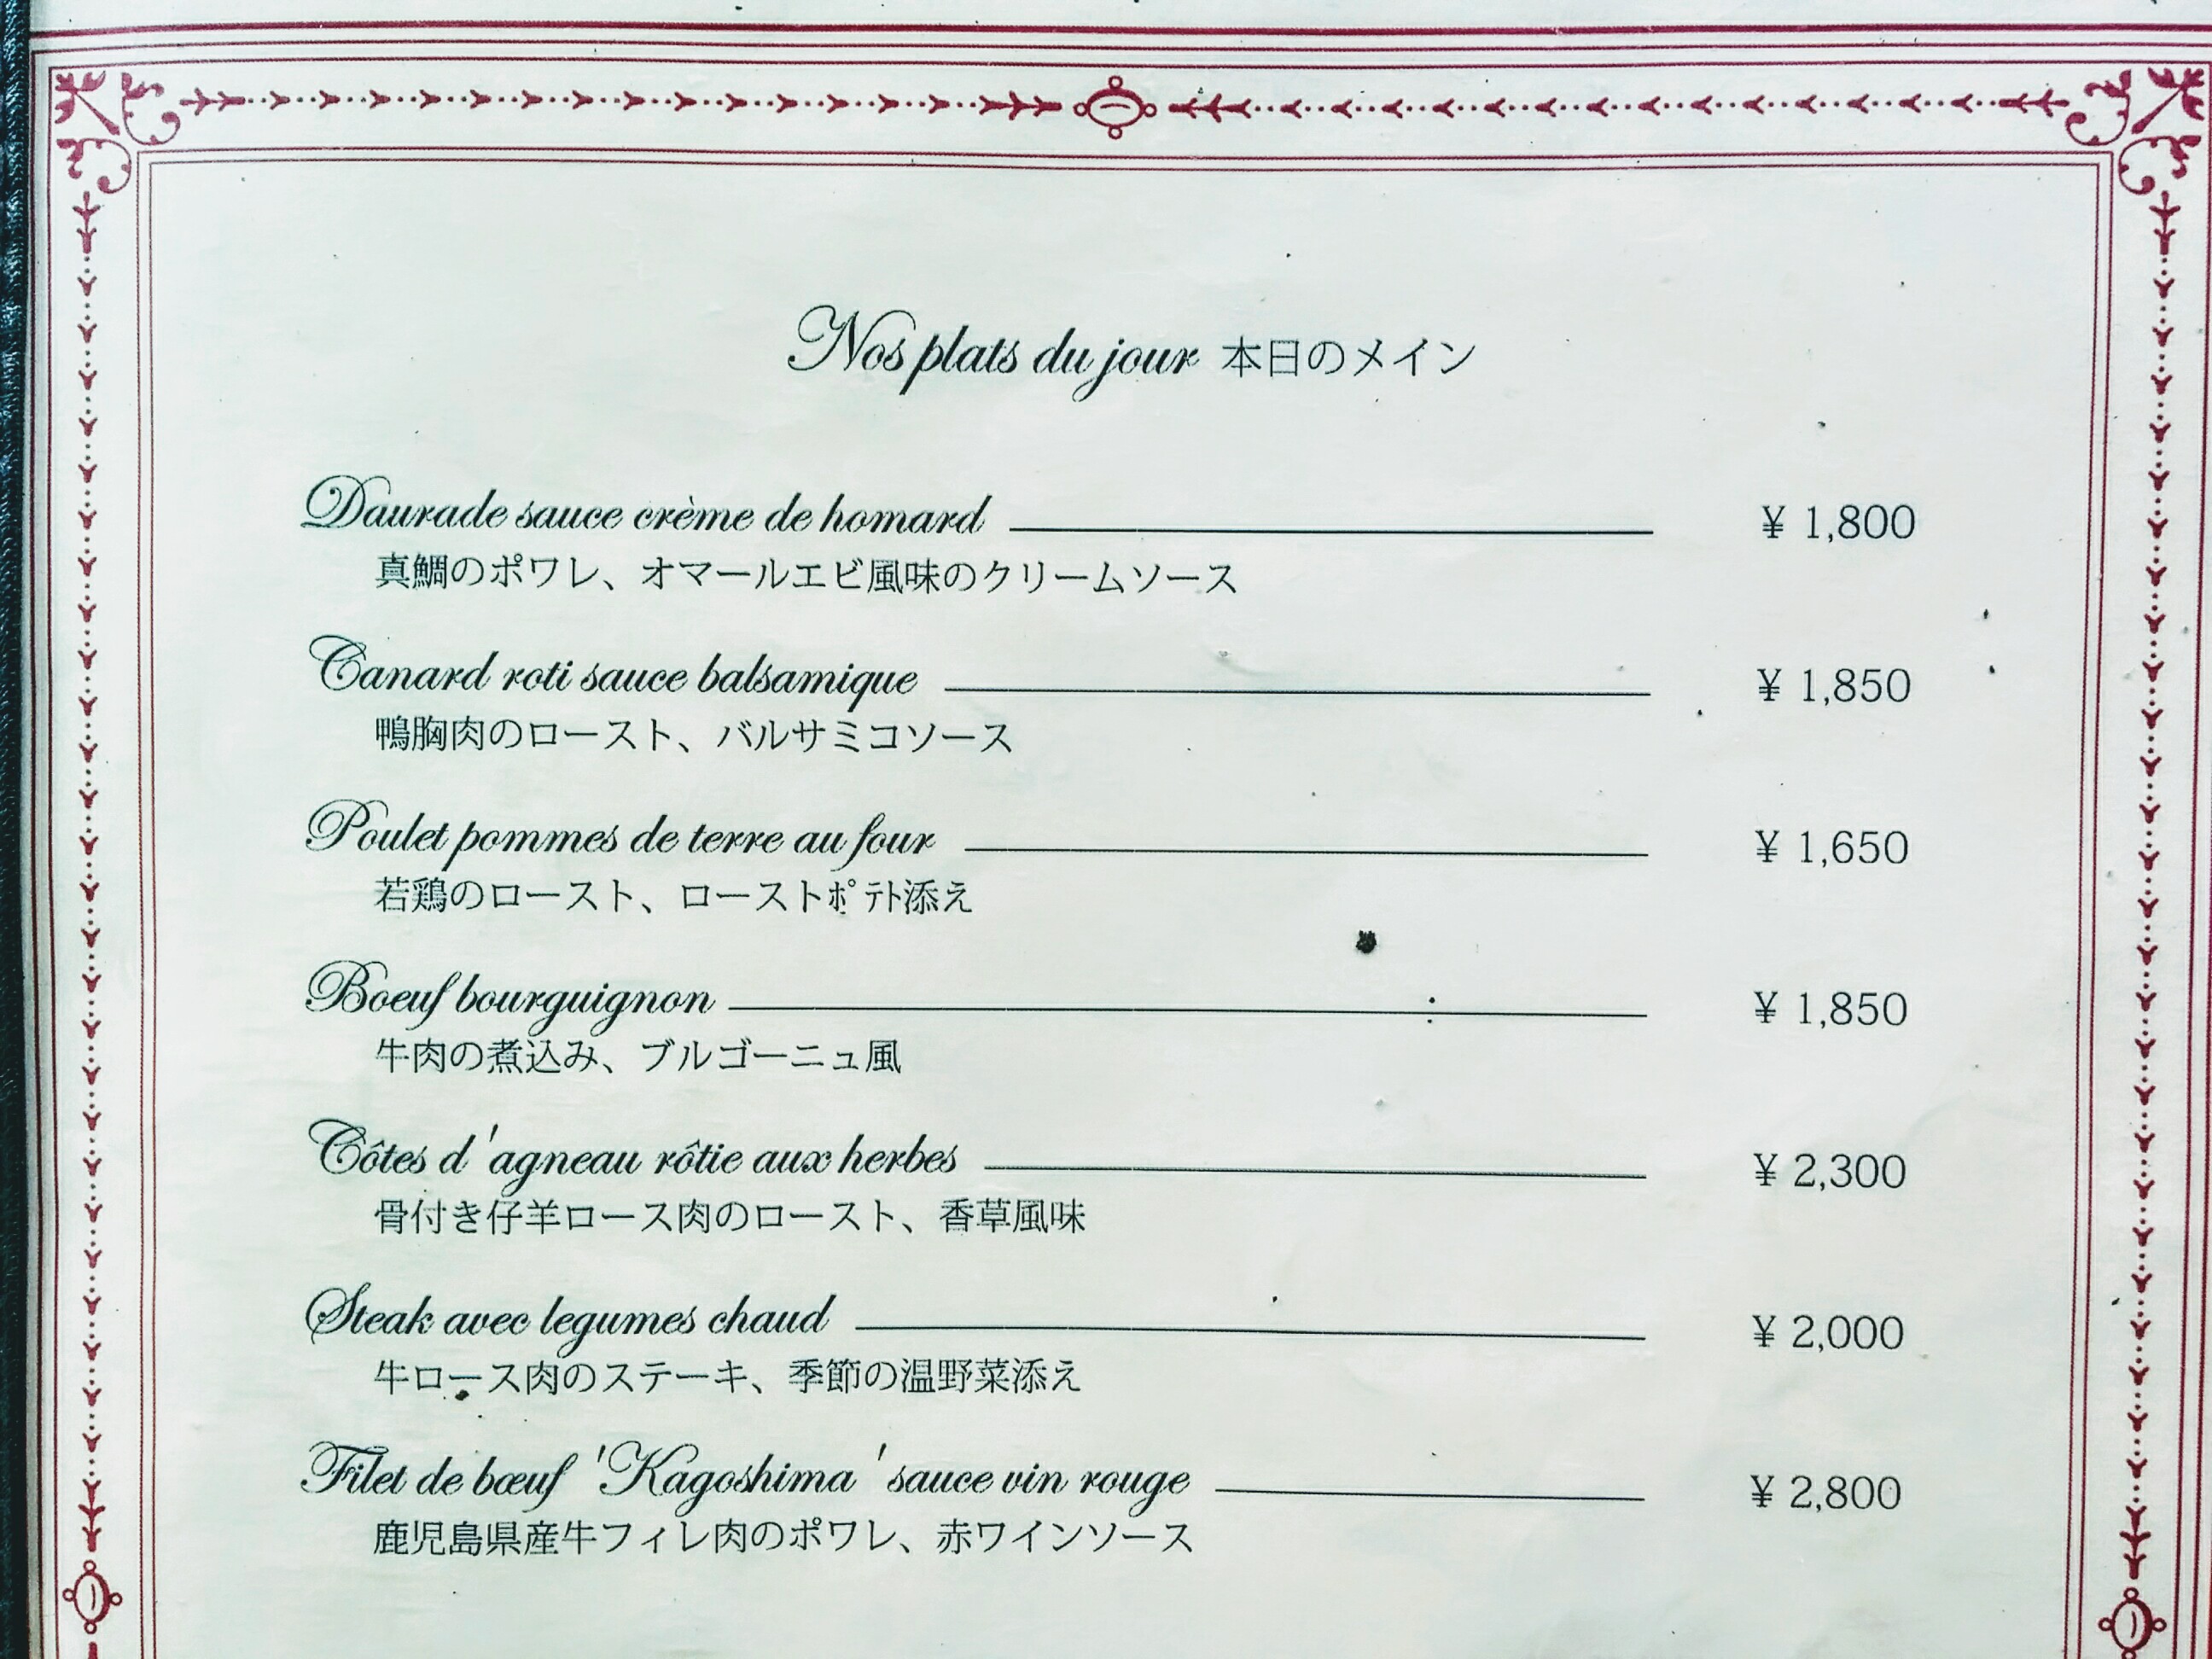 Nos plats du jour 本日のメイン
Daurade sauce crème de homard ¥ 1,800
真鯛のポワレ、オマールエビ風味のクリームソース
Canard roti sauce balsamique ¥ 1,850
鴨胸肉のロースト、バルサミコソース
Poulet pommes de terre au four ¥ 1,650
若鶏のロースト、ローストﾎﾟﾃﾄ添え
Boeuf bourguignon ¥ 1,850
牛肉の煮込み、ブルゴーニュ風
Côtes d'agneau rôtie aux herbes ¥ 2,300
骨付き仔羊ロース肉のロースト、香草風味
Steak avec legumes chaud ¥ 2,000
牛ロース肉のステーキ、季節の温野菜添え
Filet de bœuf 'Kagoshima' sauce vin rouge ¥ 2,800
鹿児島県産牛フィレ肉のポワレ、赤ワインソース